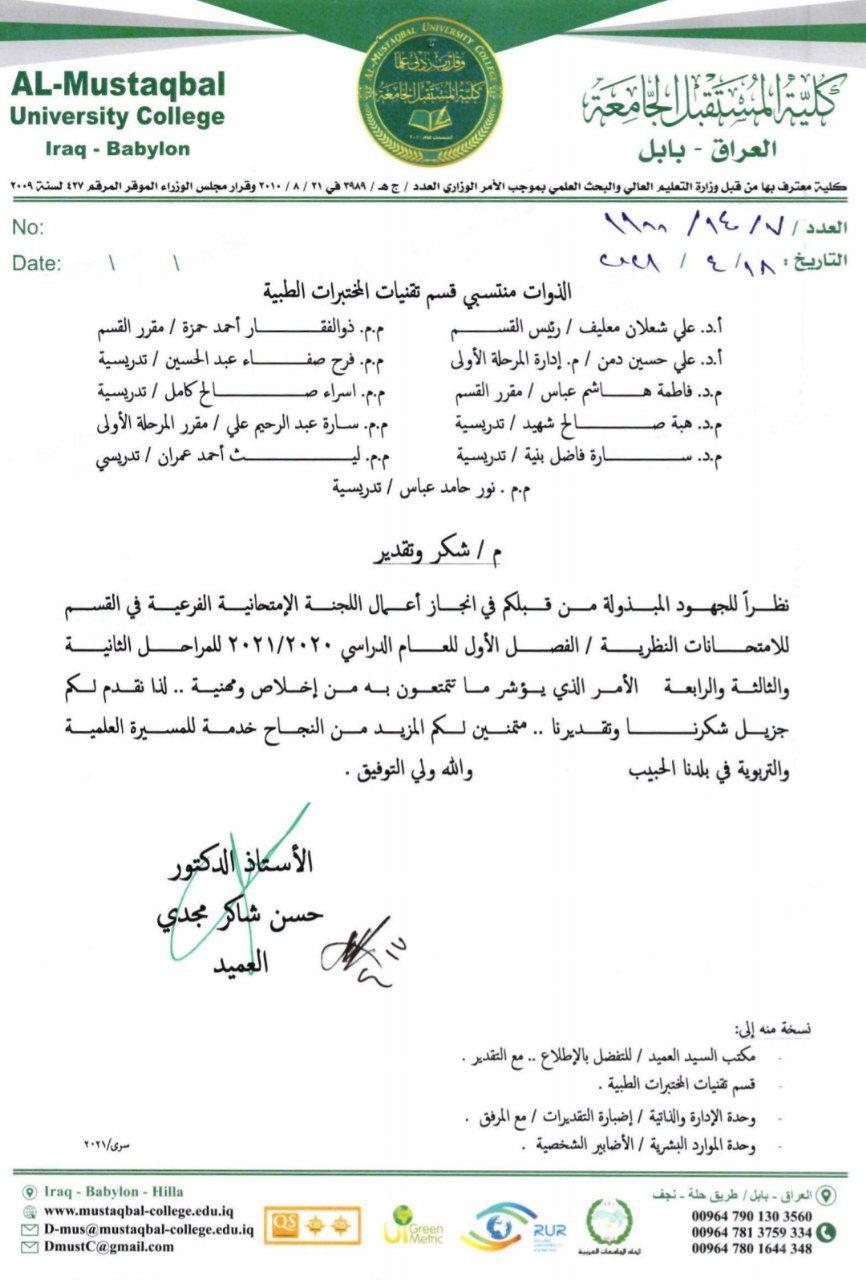 AL-Mustaqbal
University College
Iraq - Babylon
AL-MUSTAQBAL UNIVERSITY COLLEGE
وقل رب زدني علما
كلية المستقبل الجامعة
كلية المستقبل الجامعة
العراق - بابل
كلية معترف بها من قبل وزارة التعليم العالي والبحث العلمي بموجب الأمر الوزاري العدد / ج هـ / ٣٩٨٩ في ٢١ / ٨ / ٢٠١٠ وقرار مجلس الوزراء الموقر المرقم ٤٢٧ لسنة ٢٠٠٩
No:
العدد /
Date: \ \
التاريخ : ١٨ / ٤ / ٢٠٢١
الذوات منتسبي قسم تقنيات المختبرات الطبية
أ.د. علي شعلان معليف / رئيس القســـم م.م. ذوالفقـــــار أحمد حمزة / مقرر القسم
أ.د. علي حسين دمن / م. إدارة المرحلة الأولى م.م. فرح صفـــــاء عبد الحسين / تدريسية
م.د. فاطمة هـــاشم عباس / مقرر القسم م.م. اسراء صـــــالح كامل / تدريسية
م.د. هبة صـــــالح شهيد / تدريسية م.م. سـارة عبد الرحيم علي / مقرر المرحلة الأولى
م.د. ســـــارة فاضل بنية / تدريسية م.م. ليـــــث أحمد عمران / تدريسي
م.م . نور حامد عباس / تدريسية
م / شكر وتقدير
نظـــراً للجهود المبـذولة مـن قـبلكم في انجاز أعـمال اللجنة الإمتحانية الفرعية في القسم
للامتحـــانات النظريـة / الفصل الأول للعـام الدراسي ٢٠٢١/٢٠٢٠ للمراحل الثانيـة
والثالثـة والرابعـة الأمـر الذي يـؤشر مـا تتمتعون بـه مـن إخلاص ومهنية .. لذا نقدم لكم
جزيـل شكرنـــا وتقـديرنا .. متمنين لـكم المزيـد مـن النجاح خدمـة للمسيـرة العلميـة
والتربوية في بلدنا الحبيب والله ولي التوفيق .
الأستاذ الدكتور
حسن شاكر مجدي
العميد
نسخة منه إلى:
- مكتب السيد العميد / للتفضل بالإطلاع .. مع التقدير .
- قسم تقنيات المختبرات الطبية .
- وحدة الإدارة والذاتية / إضبارة التقديرات / مع المرفق .
- وحدة الموارد البشرية / الأضابير الشخصية .
سرى/٢٠٢١
Iraq - Babylon - Hilla
www.mustaqbal-college.edu.iq
D-mus@mustaqbal-college.edu.iq
DmustC@gmail.com
QS
UI Green
Metric
RUR
اتحاد الجامعات العربية
العراق - بابل / طريق حلة - نجف
00964 790 130 3560
00964 781 3759 334
00964 780 1644 348